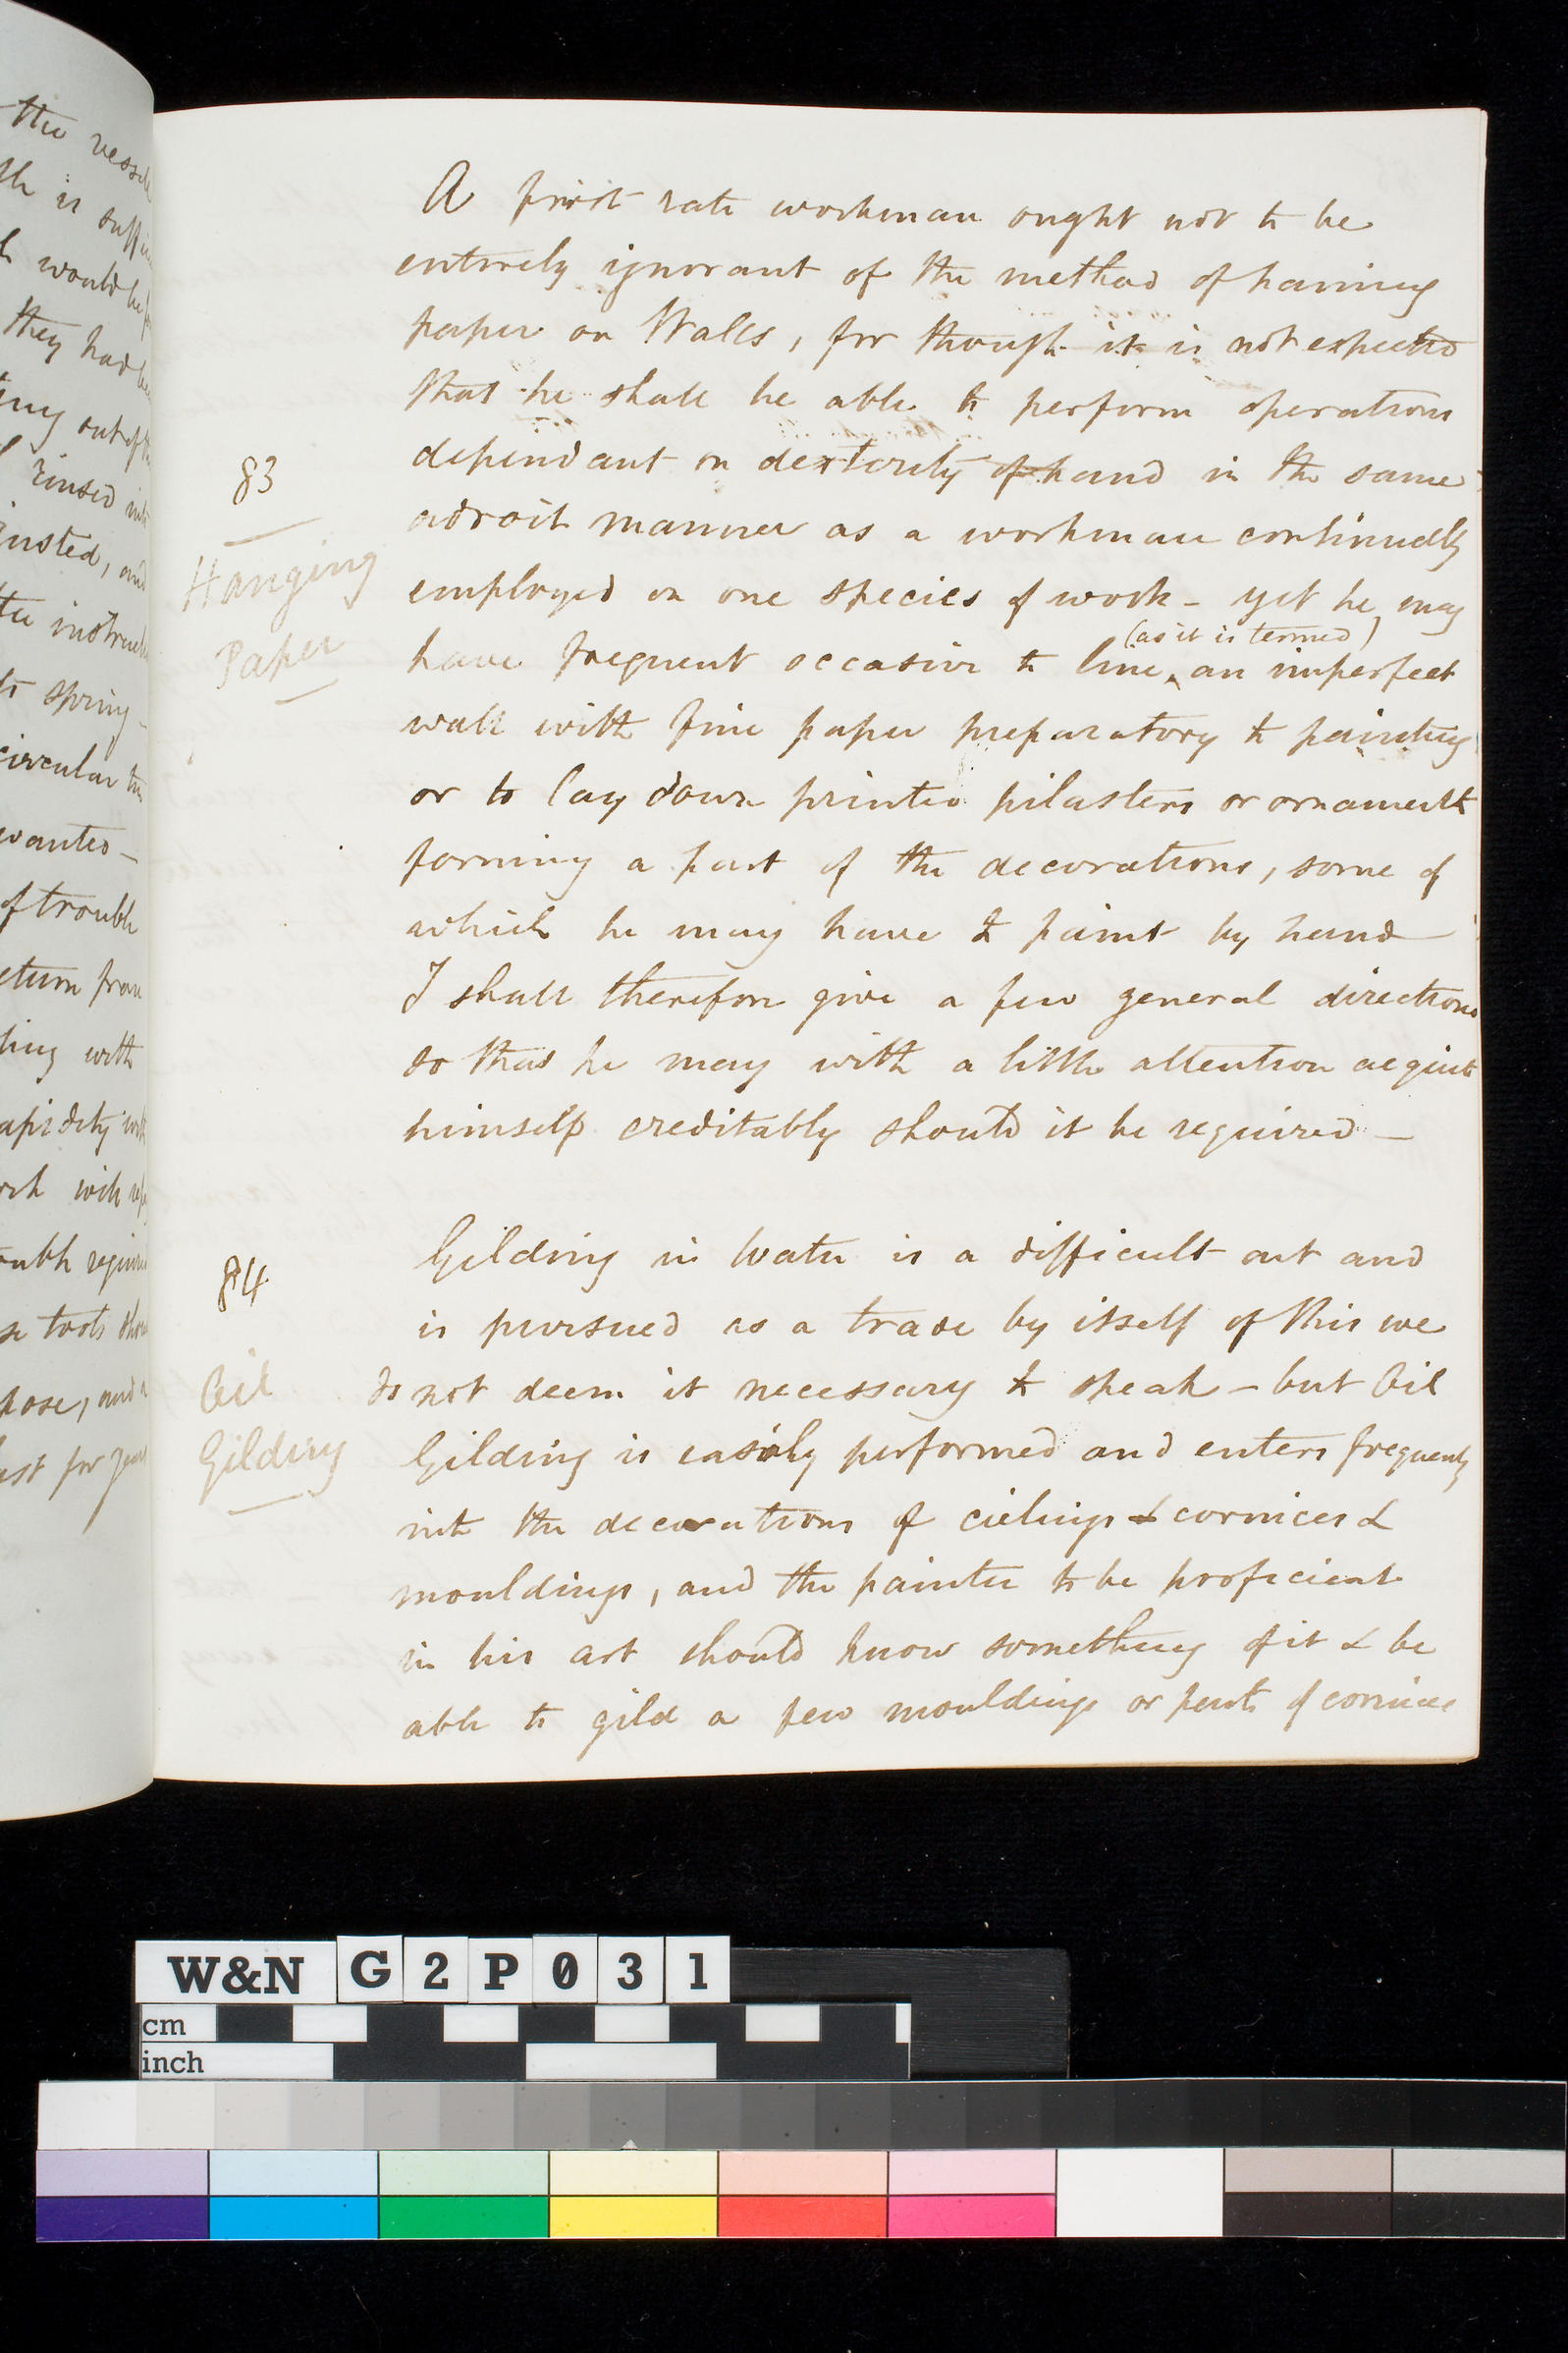 the vessel
is suffi
would be
they had be
ing out of the
rinsed into
justed, and
the instru
to spring -
circular
wanted -
of trouble
eturn from
ting with
apidity
with
ouble requi
se tools sho
pose, and a
ast for year
A first rate workman ought not to be
entirely ignorant of the method of haning
paper on Walls, for though it is not expected
that he shall be able to perform operations
dependant on dexterity of hand in the same
adroit manner as a workman continually
employed on one species of work - yet he may
(as it is termed)
have frequent occasion to line an imperfect
wall with fine paper preparatory to painting
or to lay down printed pilasters or ornaments
forming a part of the decorations, some of
which he may have to paint by hand
I shall therefore give a few general directions
so that he may with a little attention acquit
himself creditably should it be required -
83
Hanging
Paper
Gilding in Water is a difficult art and
is pursued as a trade by itself of this we
do not deem it necessary to speak - but Oil
Gilding is easily performed and enters frequently
into the decorations of cielings & cornices &
mouldings, and the painter to be proficient
in his art should know something of it & be
able to gild a few mouldings or parts of cornices
84
Oil
Gilding
W&N G2P031
cm
inch